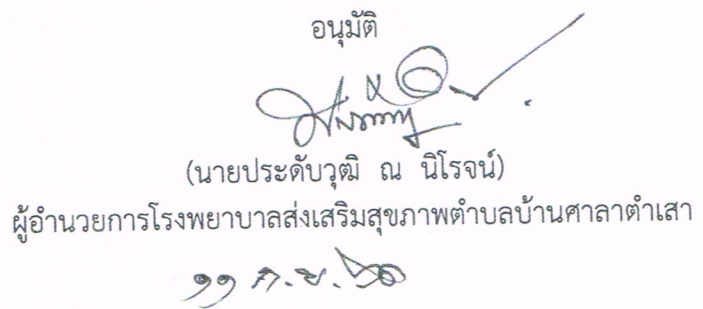 อนุมัติ
(นายประดับวุฒิ ณ นิโรจน์)
ผู้อำนวยการโรงพยาบาลส่งเสริมสุขภาพตำบลบ้านศาลาตำเสา
๑๑ ก.ย. ๖๑